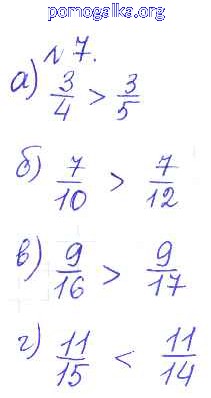 pomogalka.org
№7.
а) 3/4 > 3/5
б) 7/10 > 7/12
в) 9/16 > 9/17
г) 11/15 < 11/14